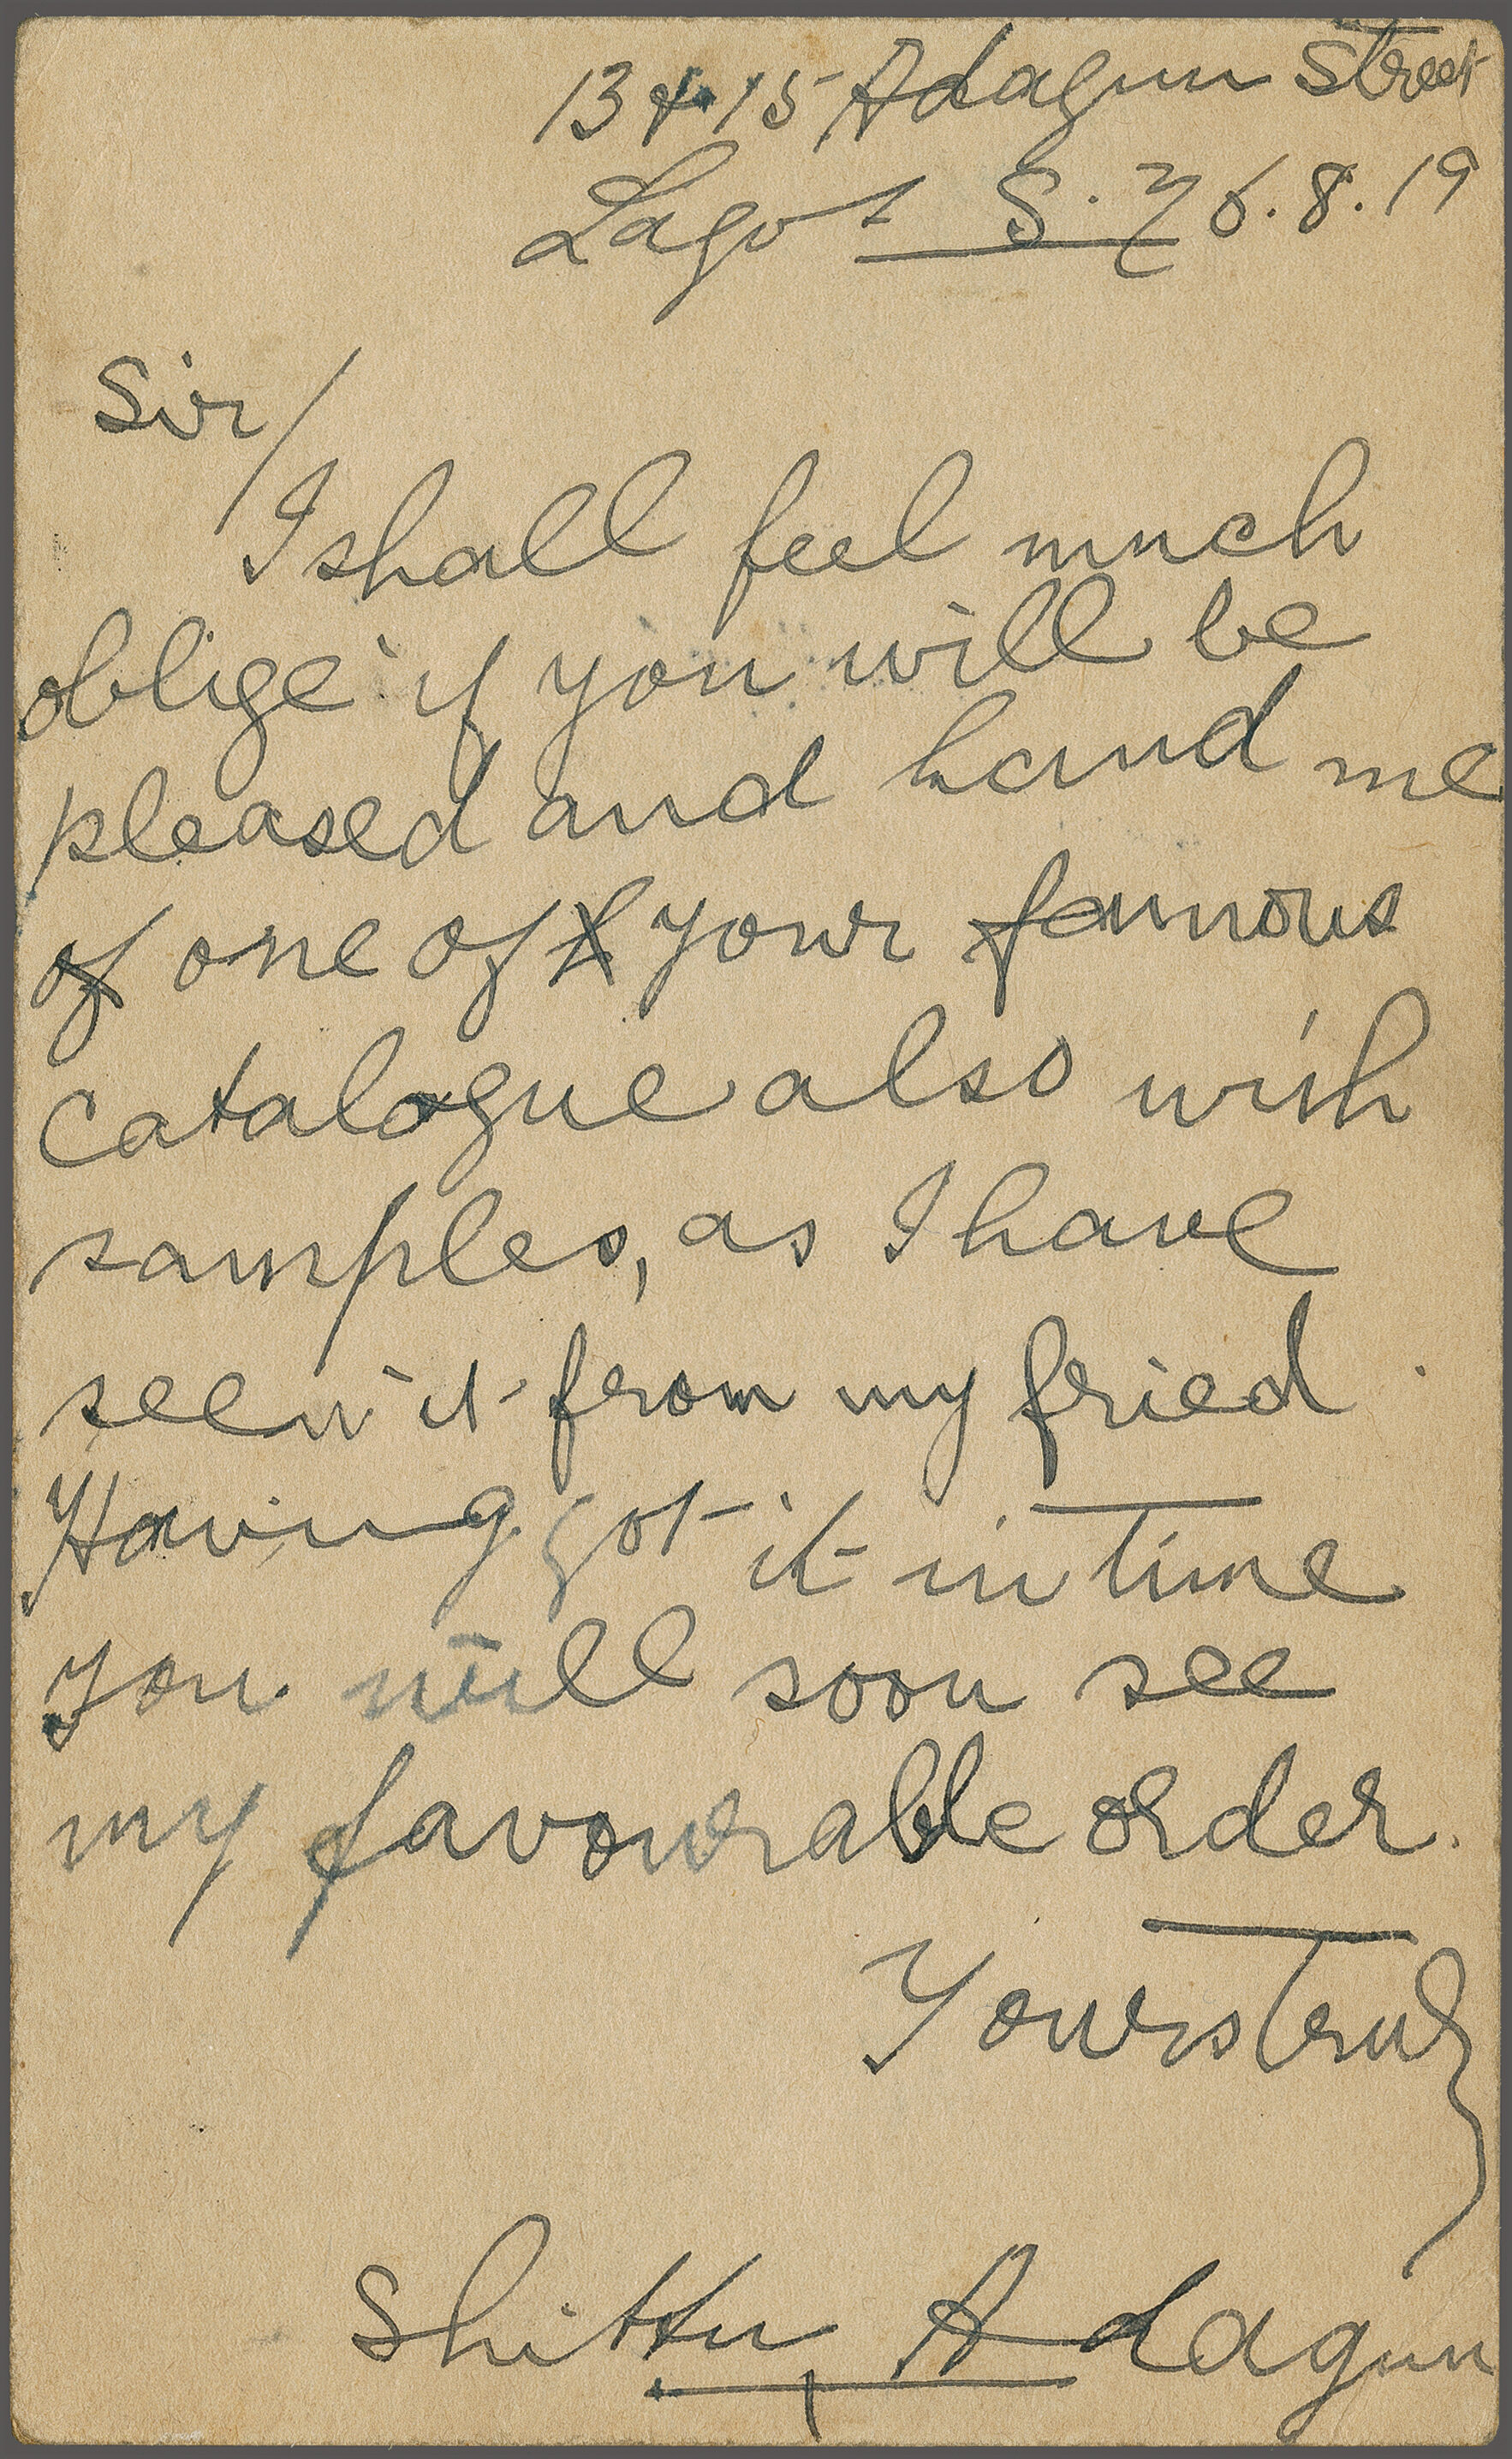 13 & 15 Adagun Street
Lagos S. N 6.8.19
Sir/
I shall feel much
oblige if you will be
pleased and hand me
of one of your famous
Catalogue also with
samples, as I have
seen it from my fried
Having got it in time
you will soon see
my favourable order.
Yours truly
Shittu Adagun